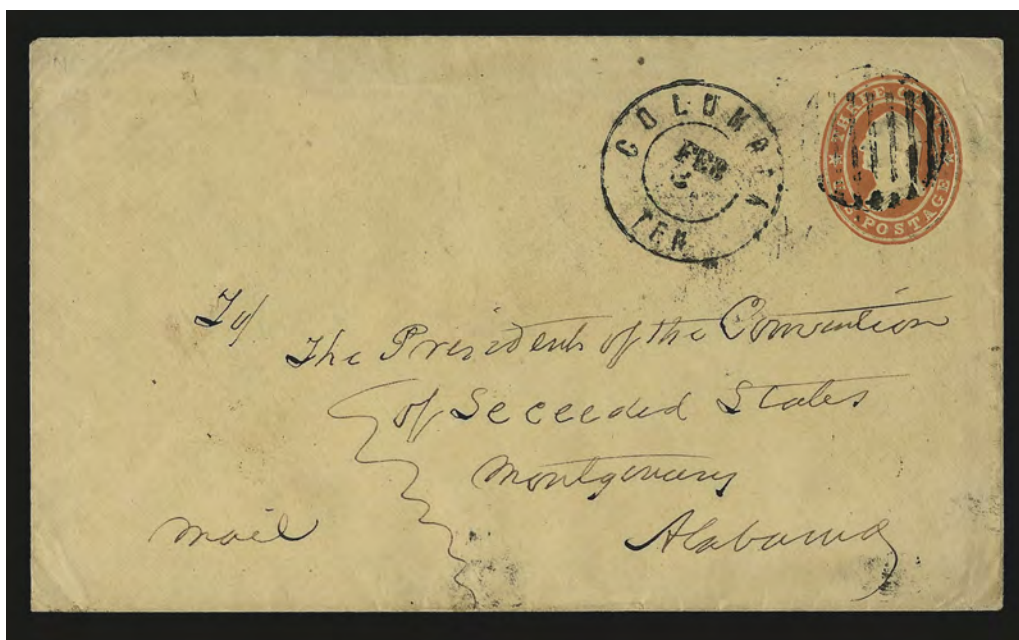 COLUMBIA
FEB
TEN.
THREE
U.S. POSTAGE
To/
The President of the Convention
of Seceeded States
Montgomery
mail
Alabama